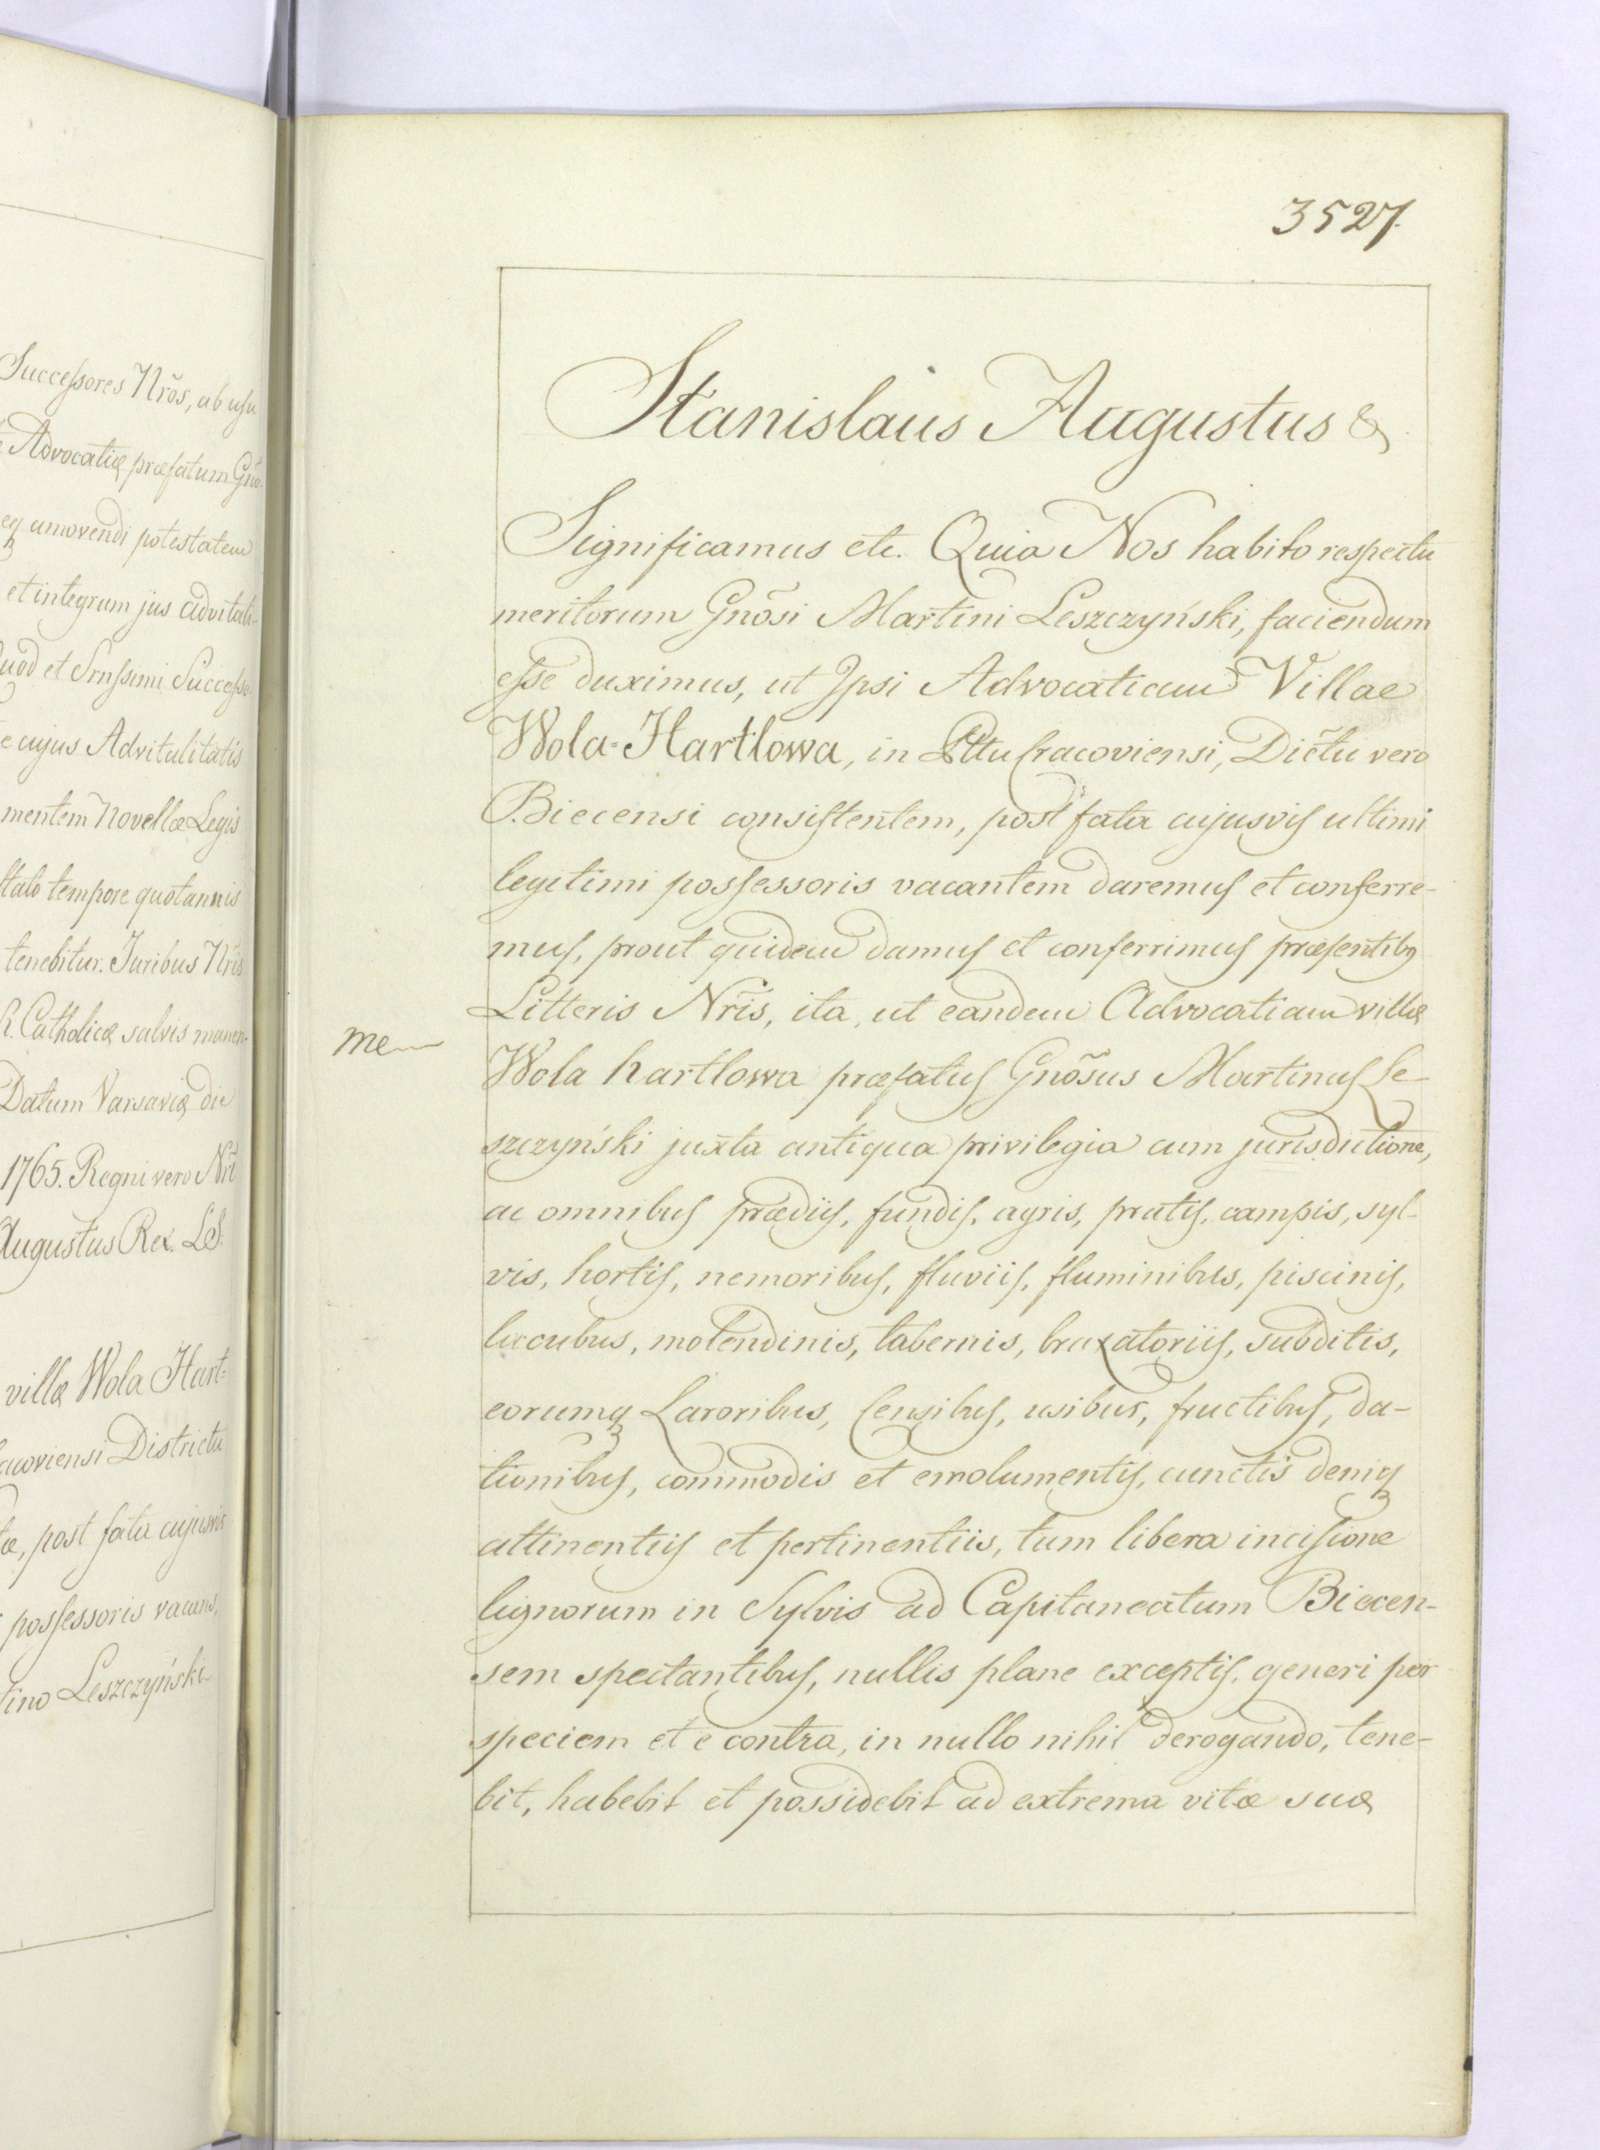 Successores Nr̃os, ab usu
Advocatiæ præfatum Gño-
amovendi potestatem
et integrum jus advitali-
et Srnssimi Successo-
cujus Advitalitatis
mentem novellæ Legis
tempore quotannis
tenebitur. Juribus Nr̃is
R. Catholicæ salvis manen-
Datum Varsaviæ die
1765. Regni vero Nr̃i
Augustus Rex. LS.
villæ Wola Hart-
Districtu
post fata cujusvis
possessoris vacans,
Leszczyński
3527.
Stanislaus Augustus &
Significamus etc. Quia Nos habito respectu
meritorum Gnõsi Martini Leszczyński, faciendum
esse duximus, ut Ipsi Advocatiam Villae
Wola-Hartlowa, in Pttu Cracoviensi, Dictu vero
Biecensi consistentem, post fata cujusvis ultimi
legitimi possessoris vacantem daremus et conferre-
mus, prout quidem damus et conferrimus præsentibq
Litteris Nr̃is, ita, ut eandem Advocatiam villæ
me
Wola hartlowa præfatus Gnõsus Martinus Le-
szczyński juxta antiqua privilegia cum jurisdictione,
ac omnibus prædiis, fundis, agris, pratis, campis, syl-
vis, hortis, nemoribus, fluviis, fluminibus, piscinis,
lacubus, molendinis, tabernis, braxatoriis, subditis,
eorumq Laroribus, Censibus, usibus, fructibus, da-
tionibus, commodis et emolumentis, cunctis deniq
attinentiis et pertinentiis, tum libera incisione
lignorum in Sylvis ad Capitaneatum Biecen-
sem spectantibus, nullis plane exceptis, generi per
speciem et e contra, in nullo nihil derogando, tene-
bit, habebit et possidebit ad extrema vitæ suæ